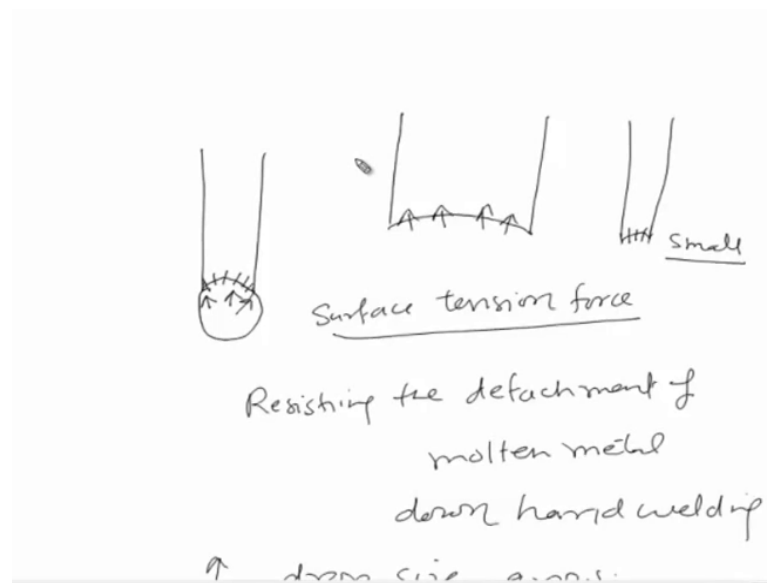 small
Surface tension force
Resisting the detachment of
molten metal
down hand welding